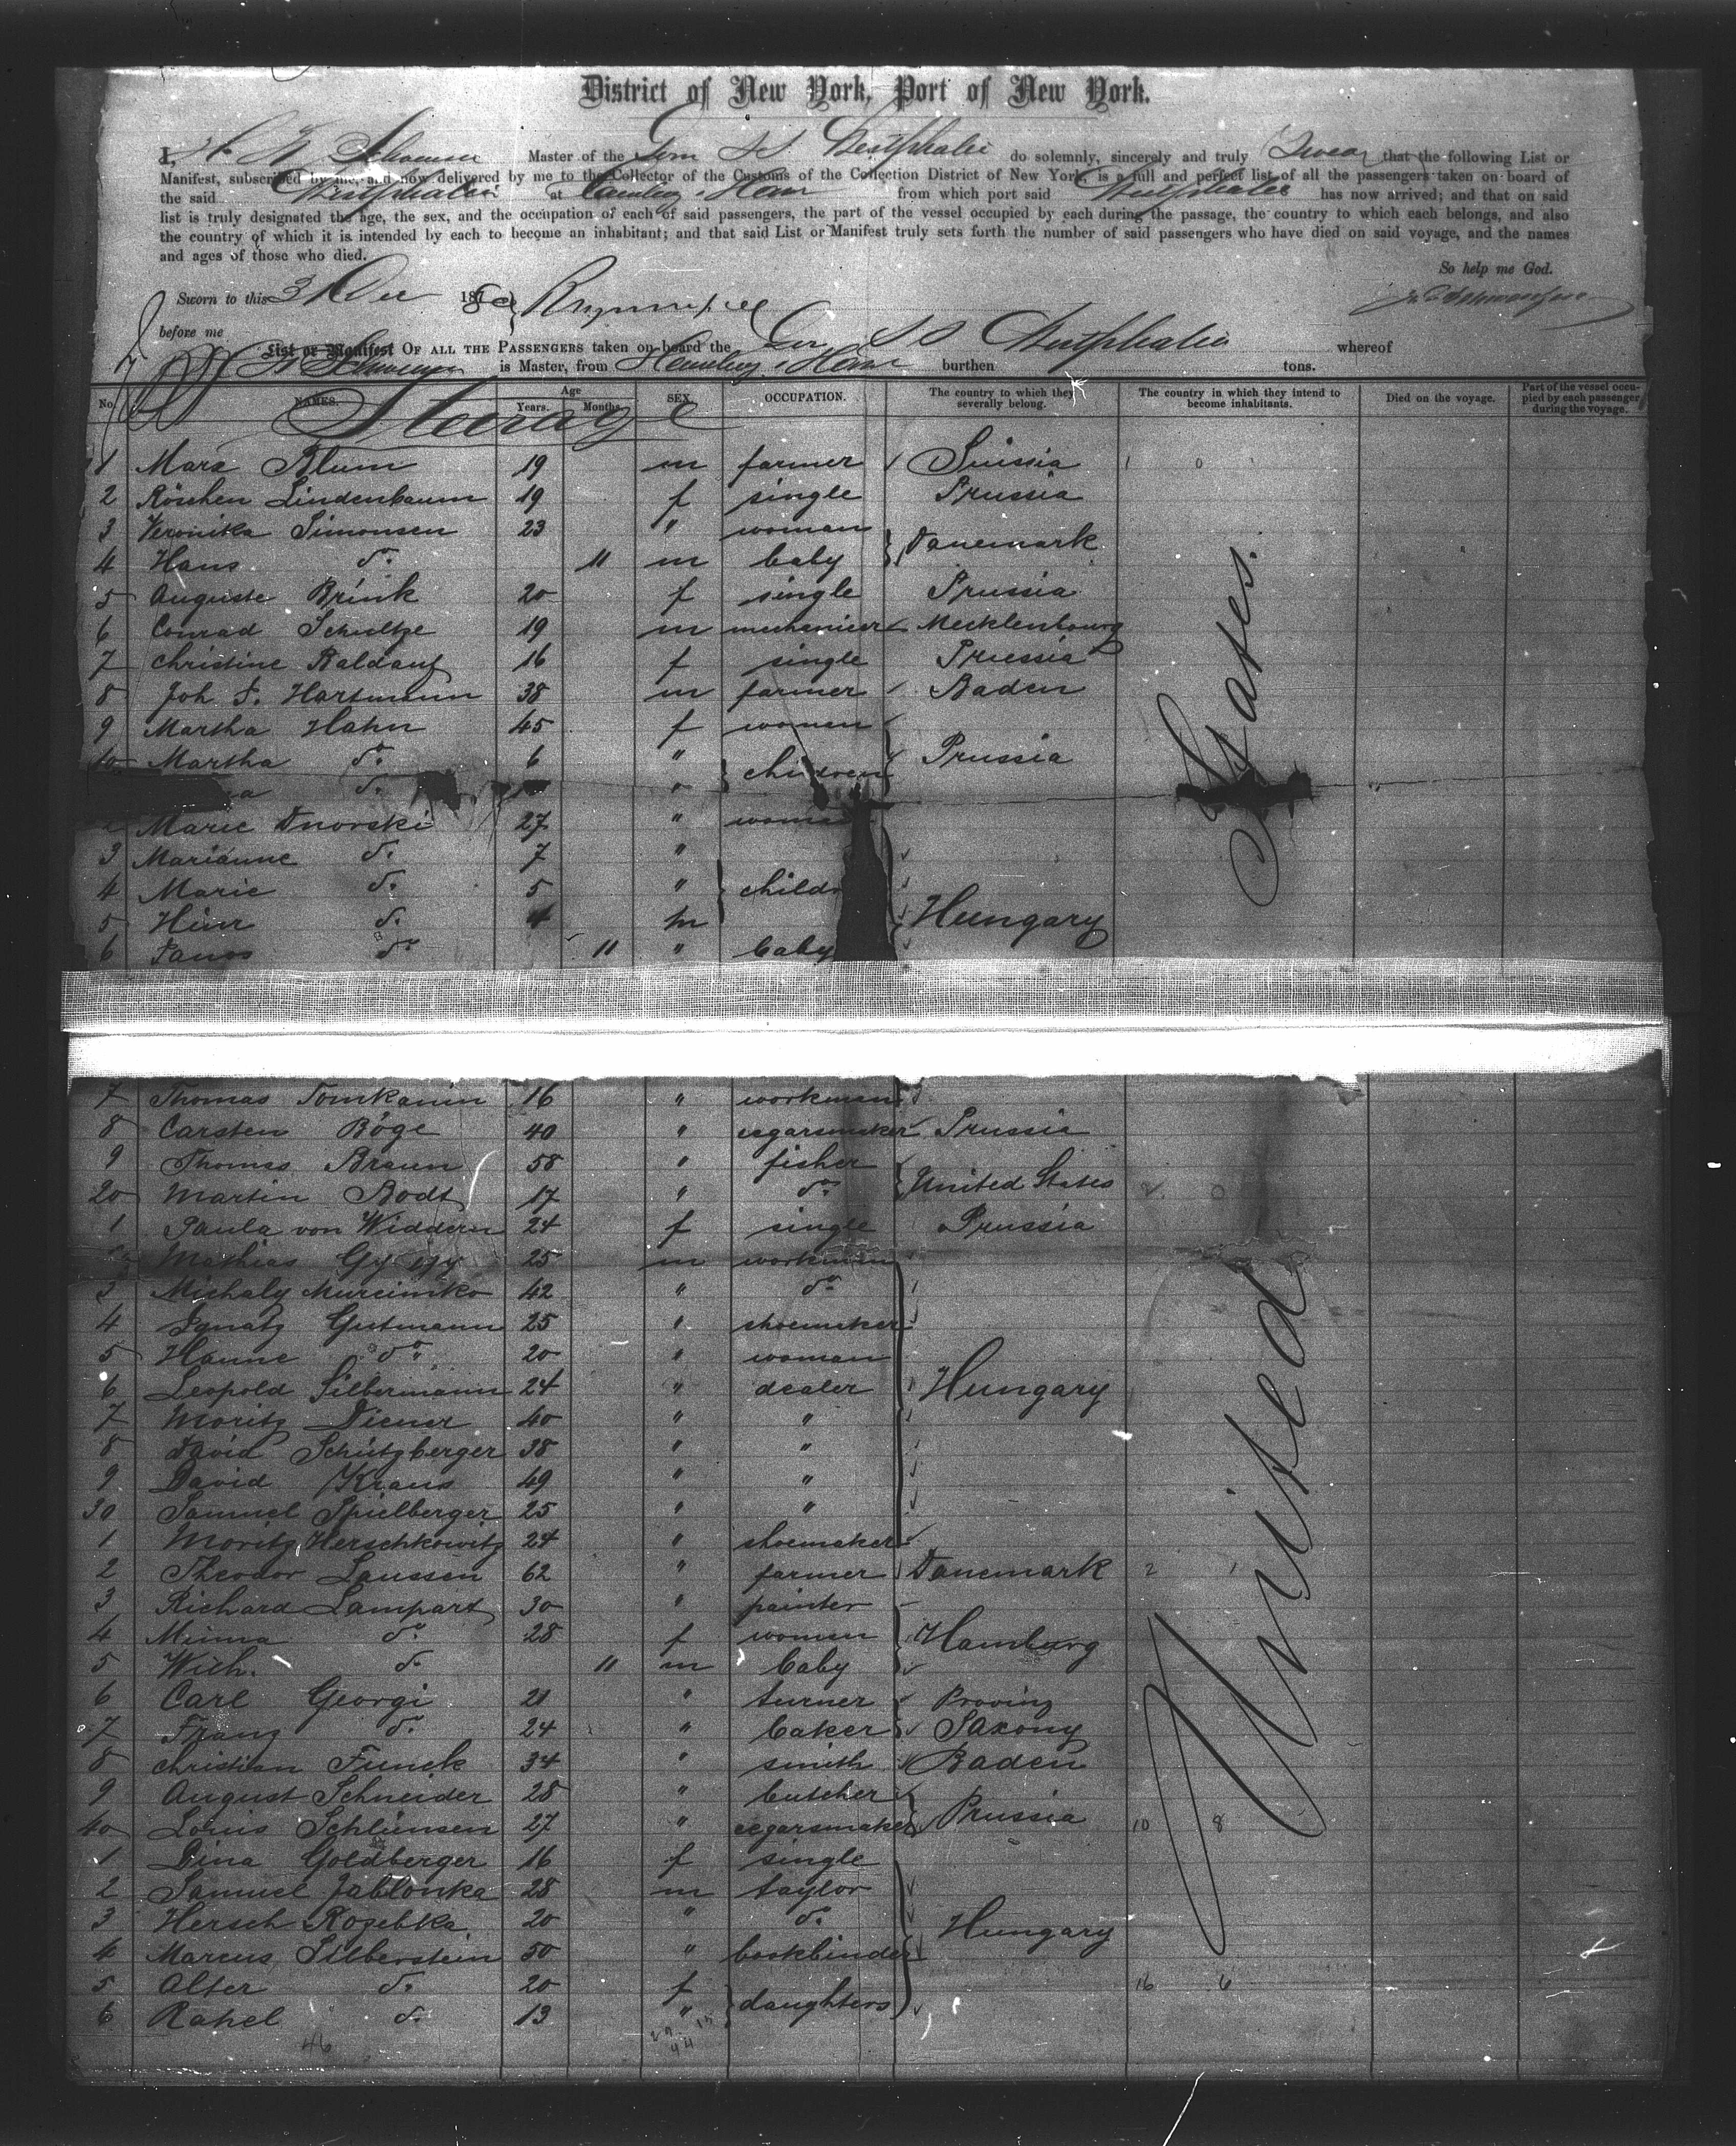 District of New York, Port of New York.
I, Master of the Ger SS Westphalia do solemnly, sincerely and truly Swear that the following List or
Manifest, subscribed by me, and now delivered by me to the Collector of the Customs of the Collection District of New York, is a full and perfect list of all the passengers taken on board of
the said Westphalia at Hamburg & Havre from which port said Westphalia has now arrived; and that on said
list is truly designated the age, the sex, and the occupation of each of said passengers, the part of the vessel occupied by each during the passage, the country to which each belongs, and also
the country of which it is intended by each to become an inhabitant; and that said List or Manifest truly sets forth the number of said passengers who have died on said voyage, and the names
and ages of those who died.
So help me God.
Sworn to this 31 Dec 1880
before me
List or Manifest OF ALL THE PASSENGERS taken on board the Ger SS Westphalia whereof
is Master, from Hamburg & Havre burthen tons.
No. NAMES. Age Years. Months. SEX. OCCUPATION. The country to which they severally belong. The country in which they intend to become inhabitants. Died on the voyage. Part of the vessel occupied by each passenger during the voyage.
Steerage
1 Marx Blum 19 m farmer Suissia 1 0
2 Röschen Lindenbaum 19 f single Prussia
3 Veronika Simonsen 23 " woman
Danemark
4 Hans do. 11 m baby
5 Auguste Brink 20 f single Prussia
6 Conrad Schultze 19 m mechanicer Mecklenbourg
7 Christine Baldauf 16 f single Prussia
8 Joh. F. Hartmann 38 m farmer Baden
9 Martha Hahn 45 f women
10 Martha do. 6 " children Prussia
do. "
2 Marie Dnorski 27 " woma
3 Marianne do. 7 "
4 Marie do. 5 " childr
5 Heinr do. 4 m Hungary
6 Janos do. 11 " baby
7 Thomas Tomkanin 16 " workman
8 Carsten Böge 40 " cegarsmaker Prussia
9 Thomas Braun 58 " fisher
United States
20 Martin Bodt 17 " do. 2 0
1 Paula von Widdern 24 f single Prussia
2 Mathias 25 m workman
3 Michaly Murcinko 42 " do.
4 Ignatz Gutmann 25 " shoemaker
5 Hanne do. 20 " woman
6 Leopold Silbermann 24 " dealer Hungary
7 Moritz Diener 40 " "
8 David Schützberger 38 " "
9 David Kraus 49 " "
30 Samuel Spielberger 25 " "
1 Moritz Herschkowitz 24 " shoemaker
2 Theodor Laussen 62 " farmer Danemark 2 1
3 Richard Lampart 30 " painter
4 Minna do. 28 f women Hamburg
5 Wilh. do. 11 m baby
6 Carl Georgi 21 " turner Provinz
7 Franz do. 24 " baker Saxony
8 Christian Funck 34 " smith Baden
9 August Schneider 28 " butcher
40 Louis Schlünsen 27 " cegarsmaker Prussia 10 8
1 Lina Goldberger 16 f single
2 Samuel Jablonka 28 m taylor
3 Hersch Rozebka 20 " do.
Hungary
4 Marcus Silberstein 50 " bookbinder
5 Alter do. 20 f daughters 16 6
6 Rahel do. 13 "
46
United States.